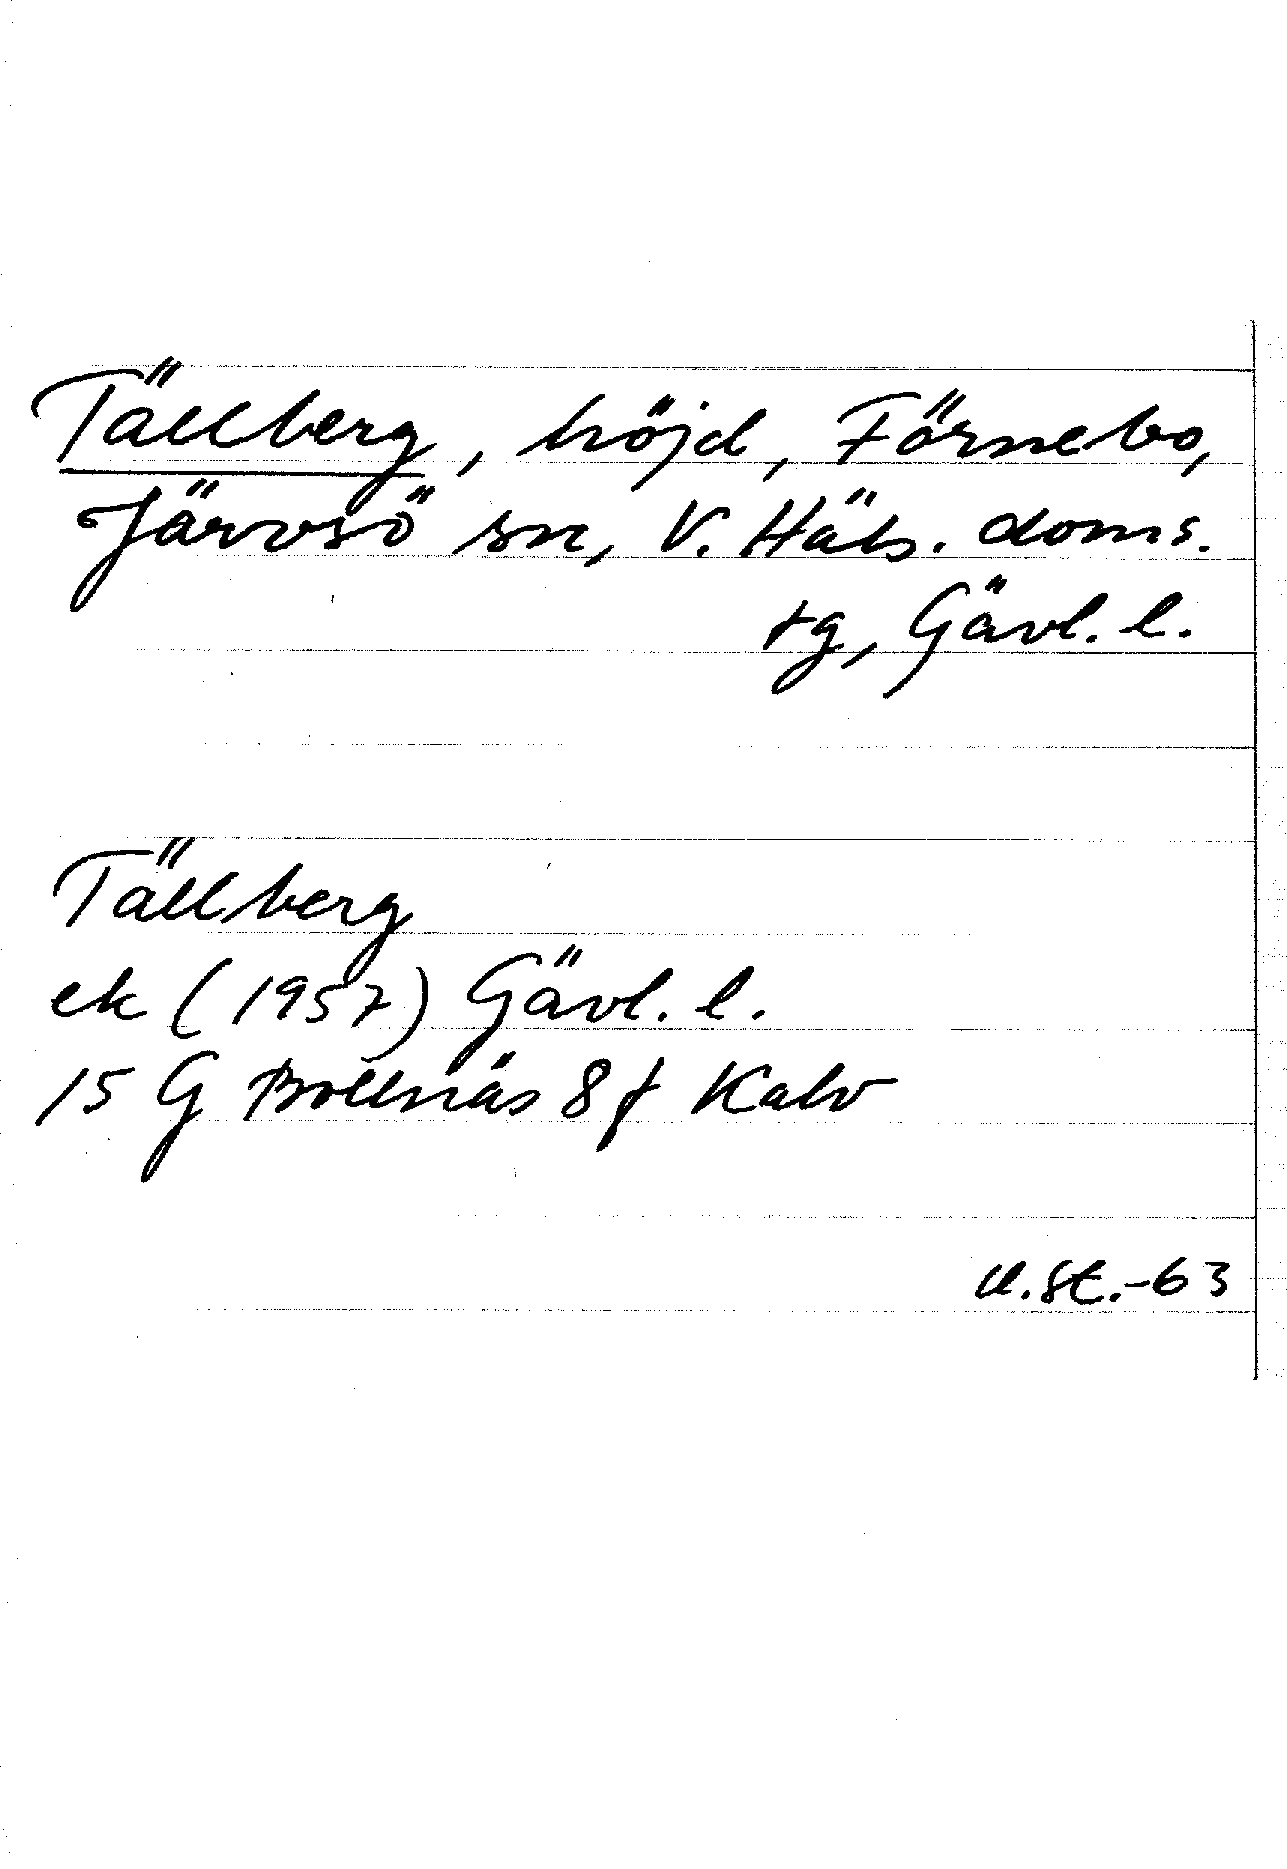 Tällberg, höjd, Förnebo,
Järvsö sn, V. Häls. doms.
tg, Gävl. l.
Tällberg
ek (1957) Gävl. l.
15 G Bollnäs 8 f Kalv
U.St.-63